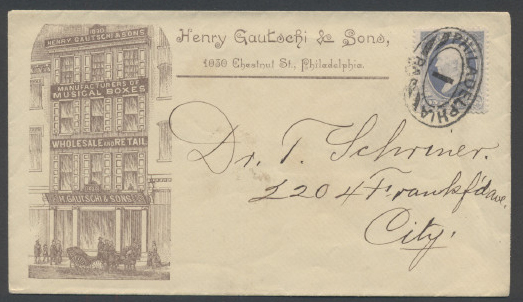 Henry Gautschi & Sons,
1030 Chestnut St., Philadelphia.
1030
HENRY GAUTSCHI & SONS
MANUFACTURERS OF
MUSICAL BOXES
WHOLESALE AND RETAIL
H. GAUTSCHI & SONS
PHILADELPHIA
1
Dr. T. Schriner.
2204 Frankf'd ave.
City.